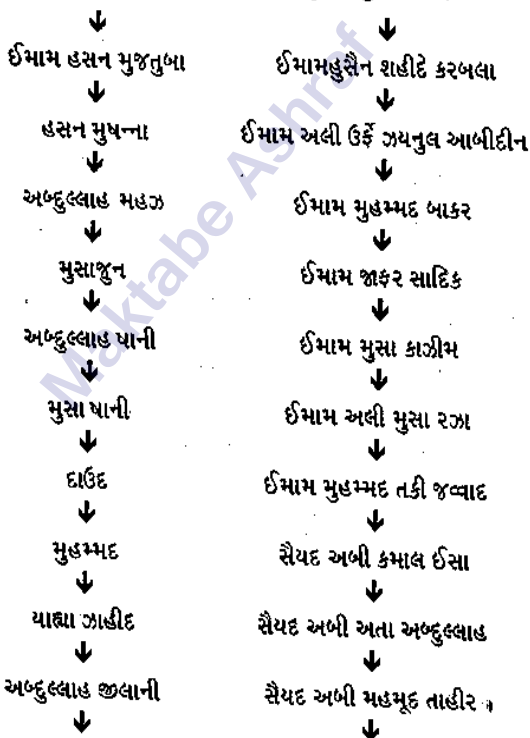 ઈમામ હસન મુજતુબા
હસન મુષન્ના
અબ્દુલ્લાહ મહઝ
મુસાજુન
અબ્દુલ્લાહ ષાની
મુસા ષાની
દાઉદ
મુહમ્મદ
યાહ્યા ઝાહીદ
અબ્દુલ્લાહ જીલાની
ઈમામહુસૈન શહીદે કરબલા
ઈમામ અલી ઉર્ફે ઝયનુલ આબીદીન
ઈમામ મુહમ્મદ બાકર
ઈમામ જાફર સાદિક
ઈમામ મુસા કાઝીમ
ઈમામ અલી મુસા રઝા
ઈમામ મુહમ્મદ તકી જવ્વાદ
સૈયદ અબી કમાલ ઈસા
સૈયદ અબી અતા અબ્દુલ્લાહ
સૈયદ અબી મહમૂદ તાહીર
Maktabe Ashraf